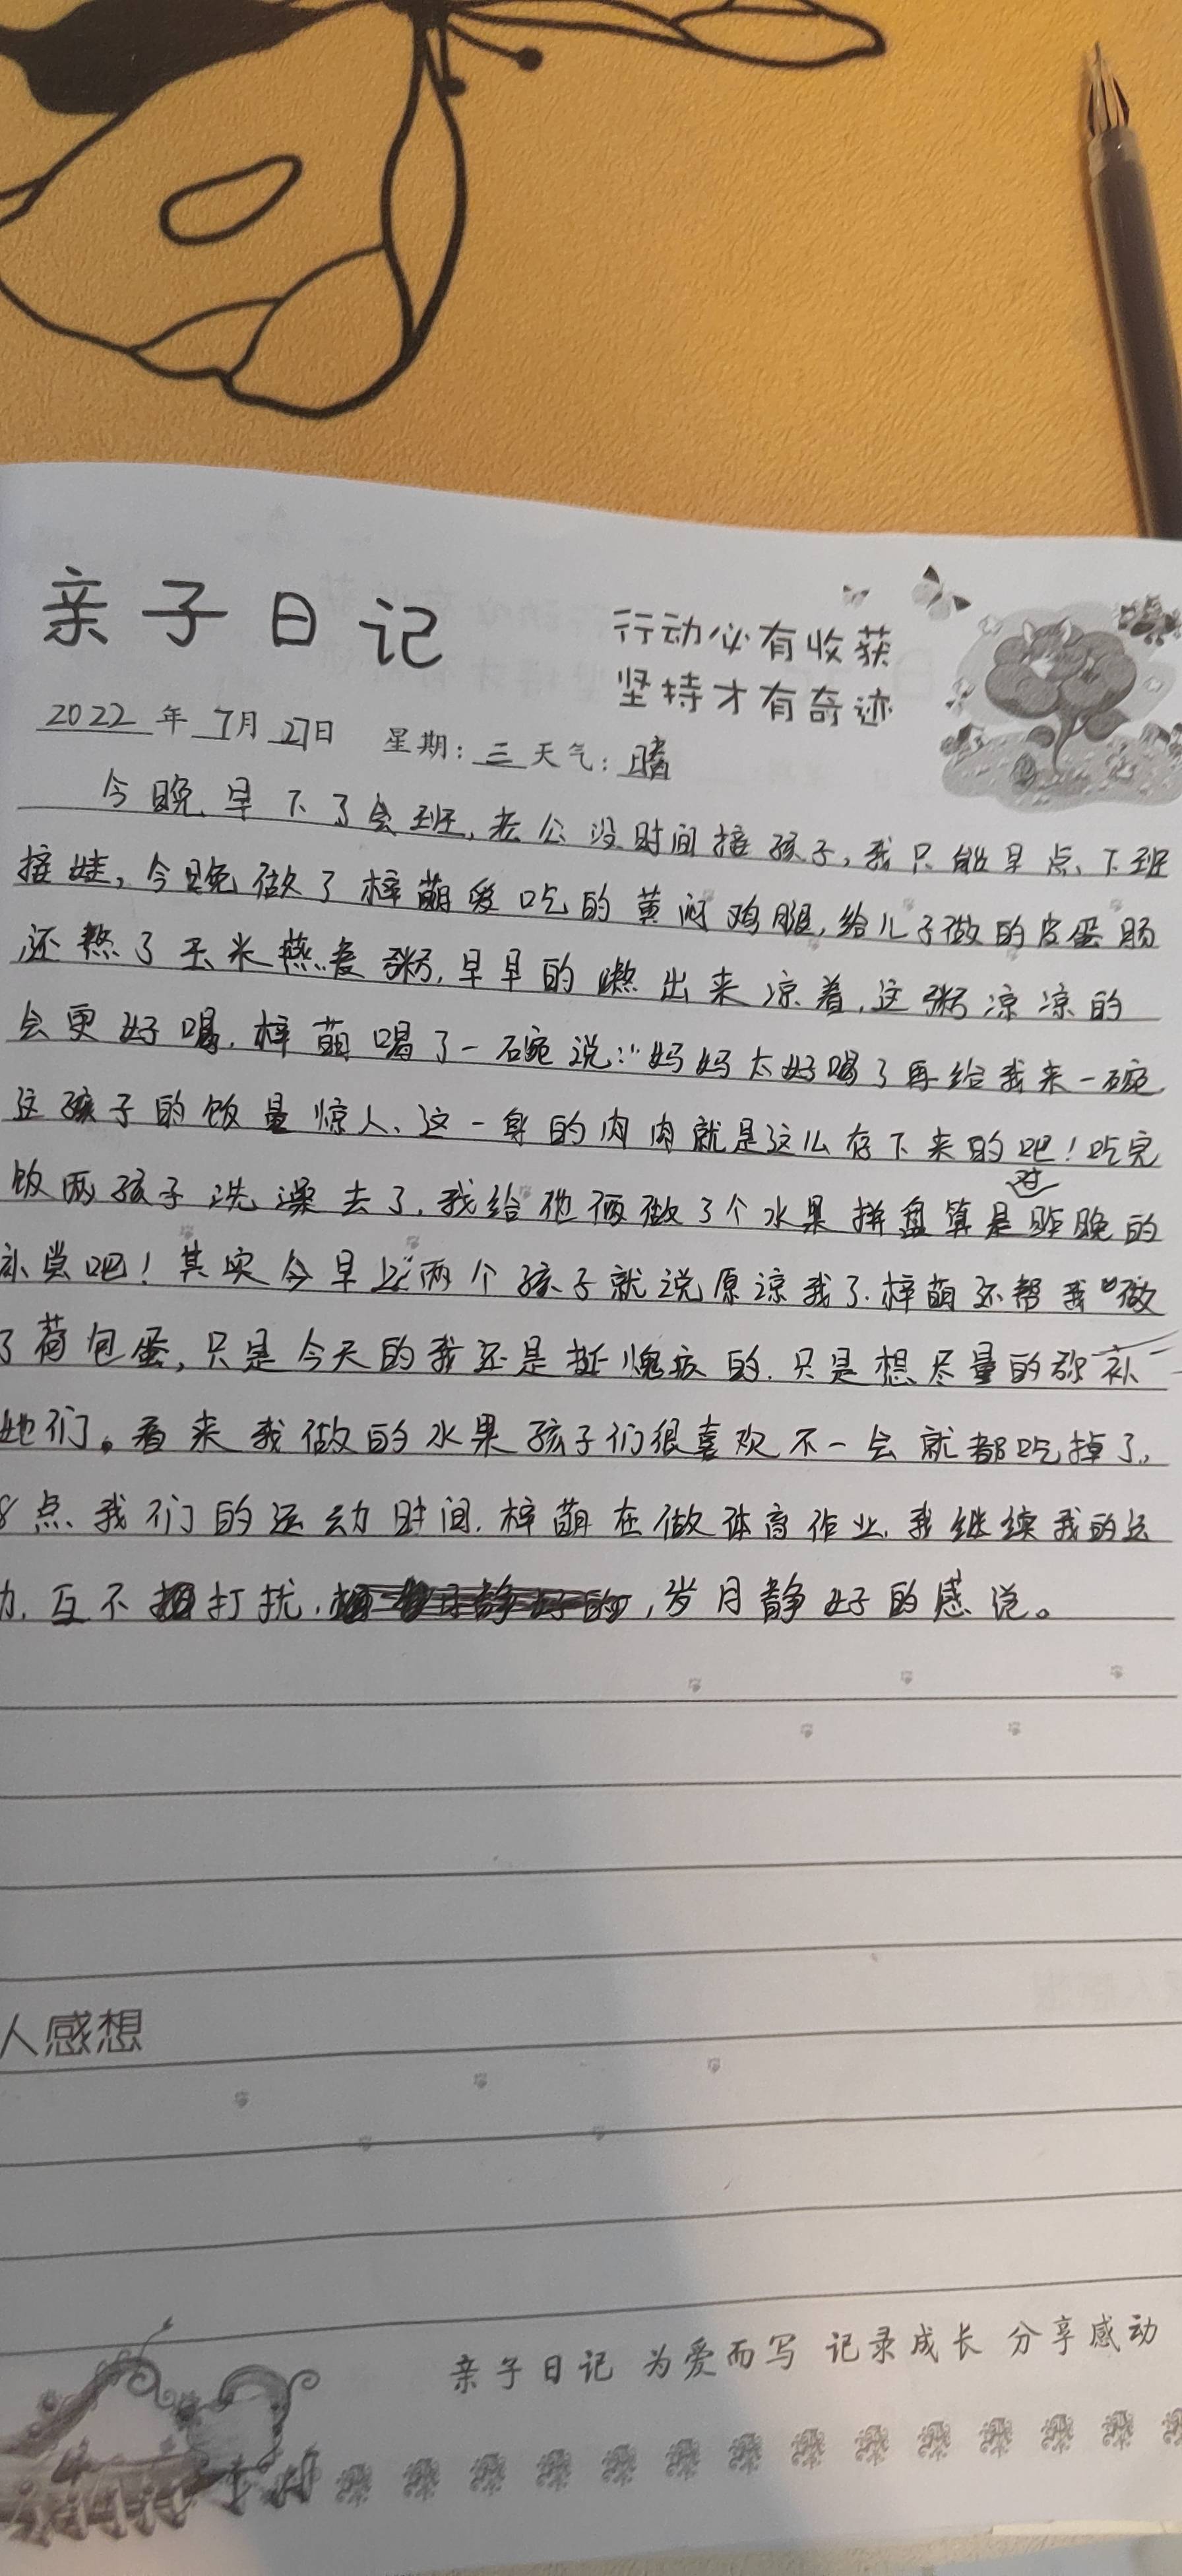 亲子日记
行动必有收获
坚持才有奇迹
2022年7月27日 星期:三天气:晴
今晚早下了会班,老公没时间接孩子,我只能早点下班
接娃,今晚做了梓萌爱吃的黄闷鸡腿,给儿子做的皮蛋肠
还熬了玉米燕麦粥,早早的熬出来凉着,这粥凉凉的
会更好喝,梓萌喝了一碗说:“妈妈太好喝了再给我来一碗
这孩子的饭量惊人、这一身的肉肉就是这么存下来的吧!吃完
饭两孩子洗澡去了,我给他俩做了个水果拼盘算是对昨晚的
补尝吧!其实今早上两个孩子就说原谅我了.梓萌还帮我做
了荷包蛋,只是今天的我还是挺愧疚的.只是想尽量的弥补
她们。看来我做的水果孩子们很喜欢不一会就都吃掉了,
8点我们的运动时间.梓萌在做体育作业,我继续我的运
动.互不打扰,岁月静好的感觉。
人感想
亲子日记 为爱而写 记录成长 分享感动